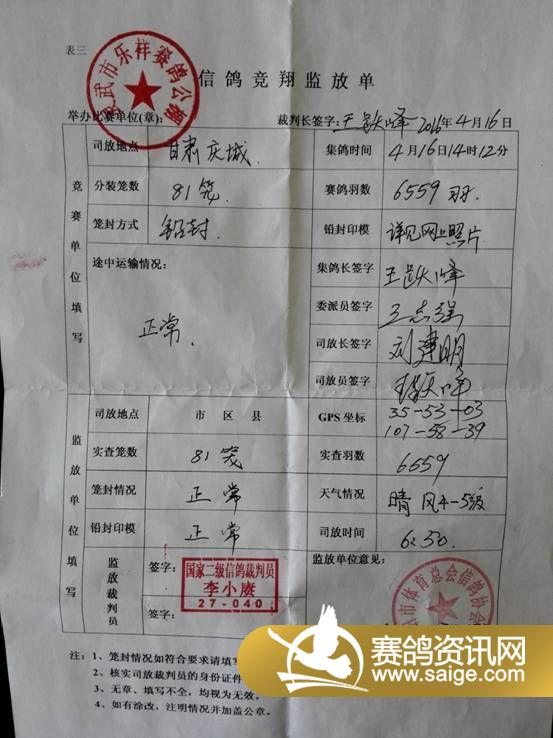 表三
武市乐祥赛鸽公棚
信鸽竞翔监放单
举办比赛单位(章): 裁判长签字: 王跃峰 2016年4月16日
竞赛单位填写
司放地点 甘肃庆城 集鸽时间 4月16日14时12分
分装笼数 81笼 赛鸽羽数 6559羽
笼封方式 铅封 铅封印模 详见网上照片
途中运输情况: 正常 集鸽长签字 王跃峰
委派员签字 王志强
司放长签字 刘建明
司放员签字
监放单位填写
司放地点 市区县 GPS坐标 35-53-03
107-58-39
实查笼数 81笼 实查羽数 6559
笼封情况 正常 天气情况 晴 风4-5级
铅封印模 正常 司放时间 6:50
监放裁判员 签字: 国家二级信鸽裁判员
李小赓
27-040
签字:
监放单位意见:
市体育总会信鸽协会
注: 1、笼封情况如符合要求请填写
2、核实司放裁判员的身份证件
3、无章、填写不全,均视为无效。
4、如有涂改,注明情况并加盖公章。
赛鸽资讯网
www.saige.com